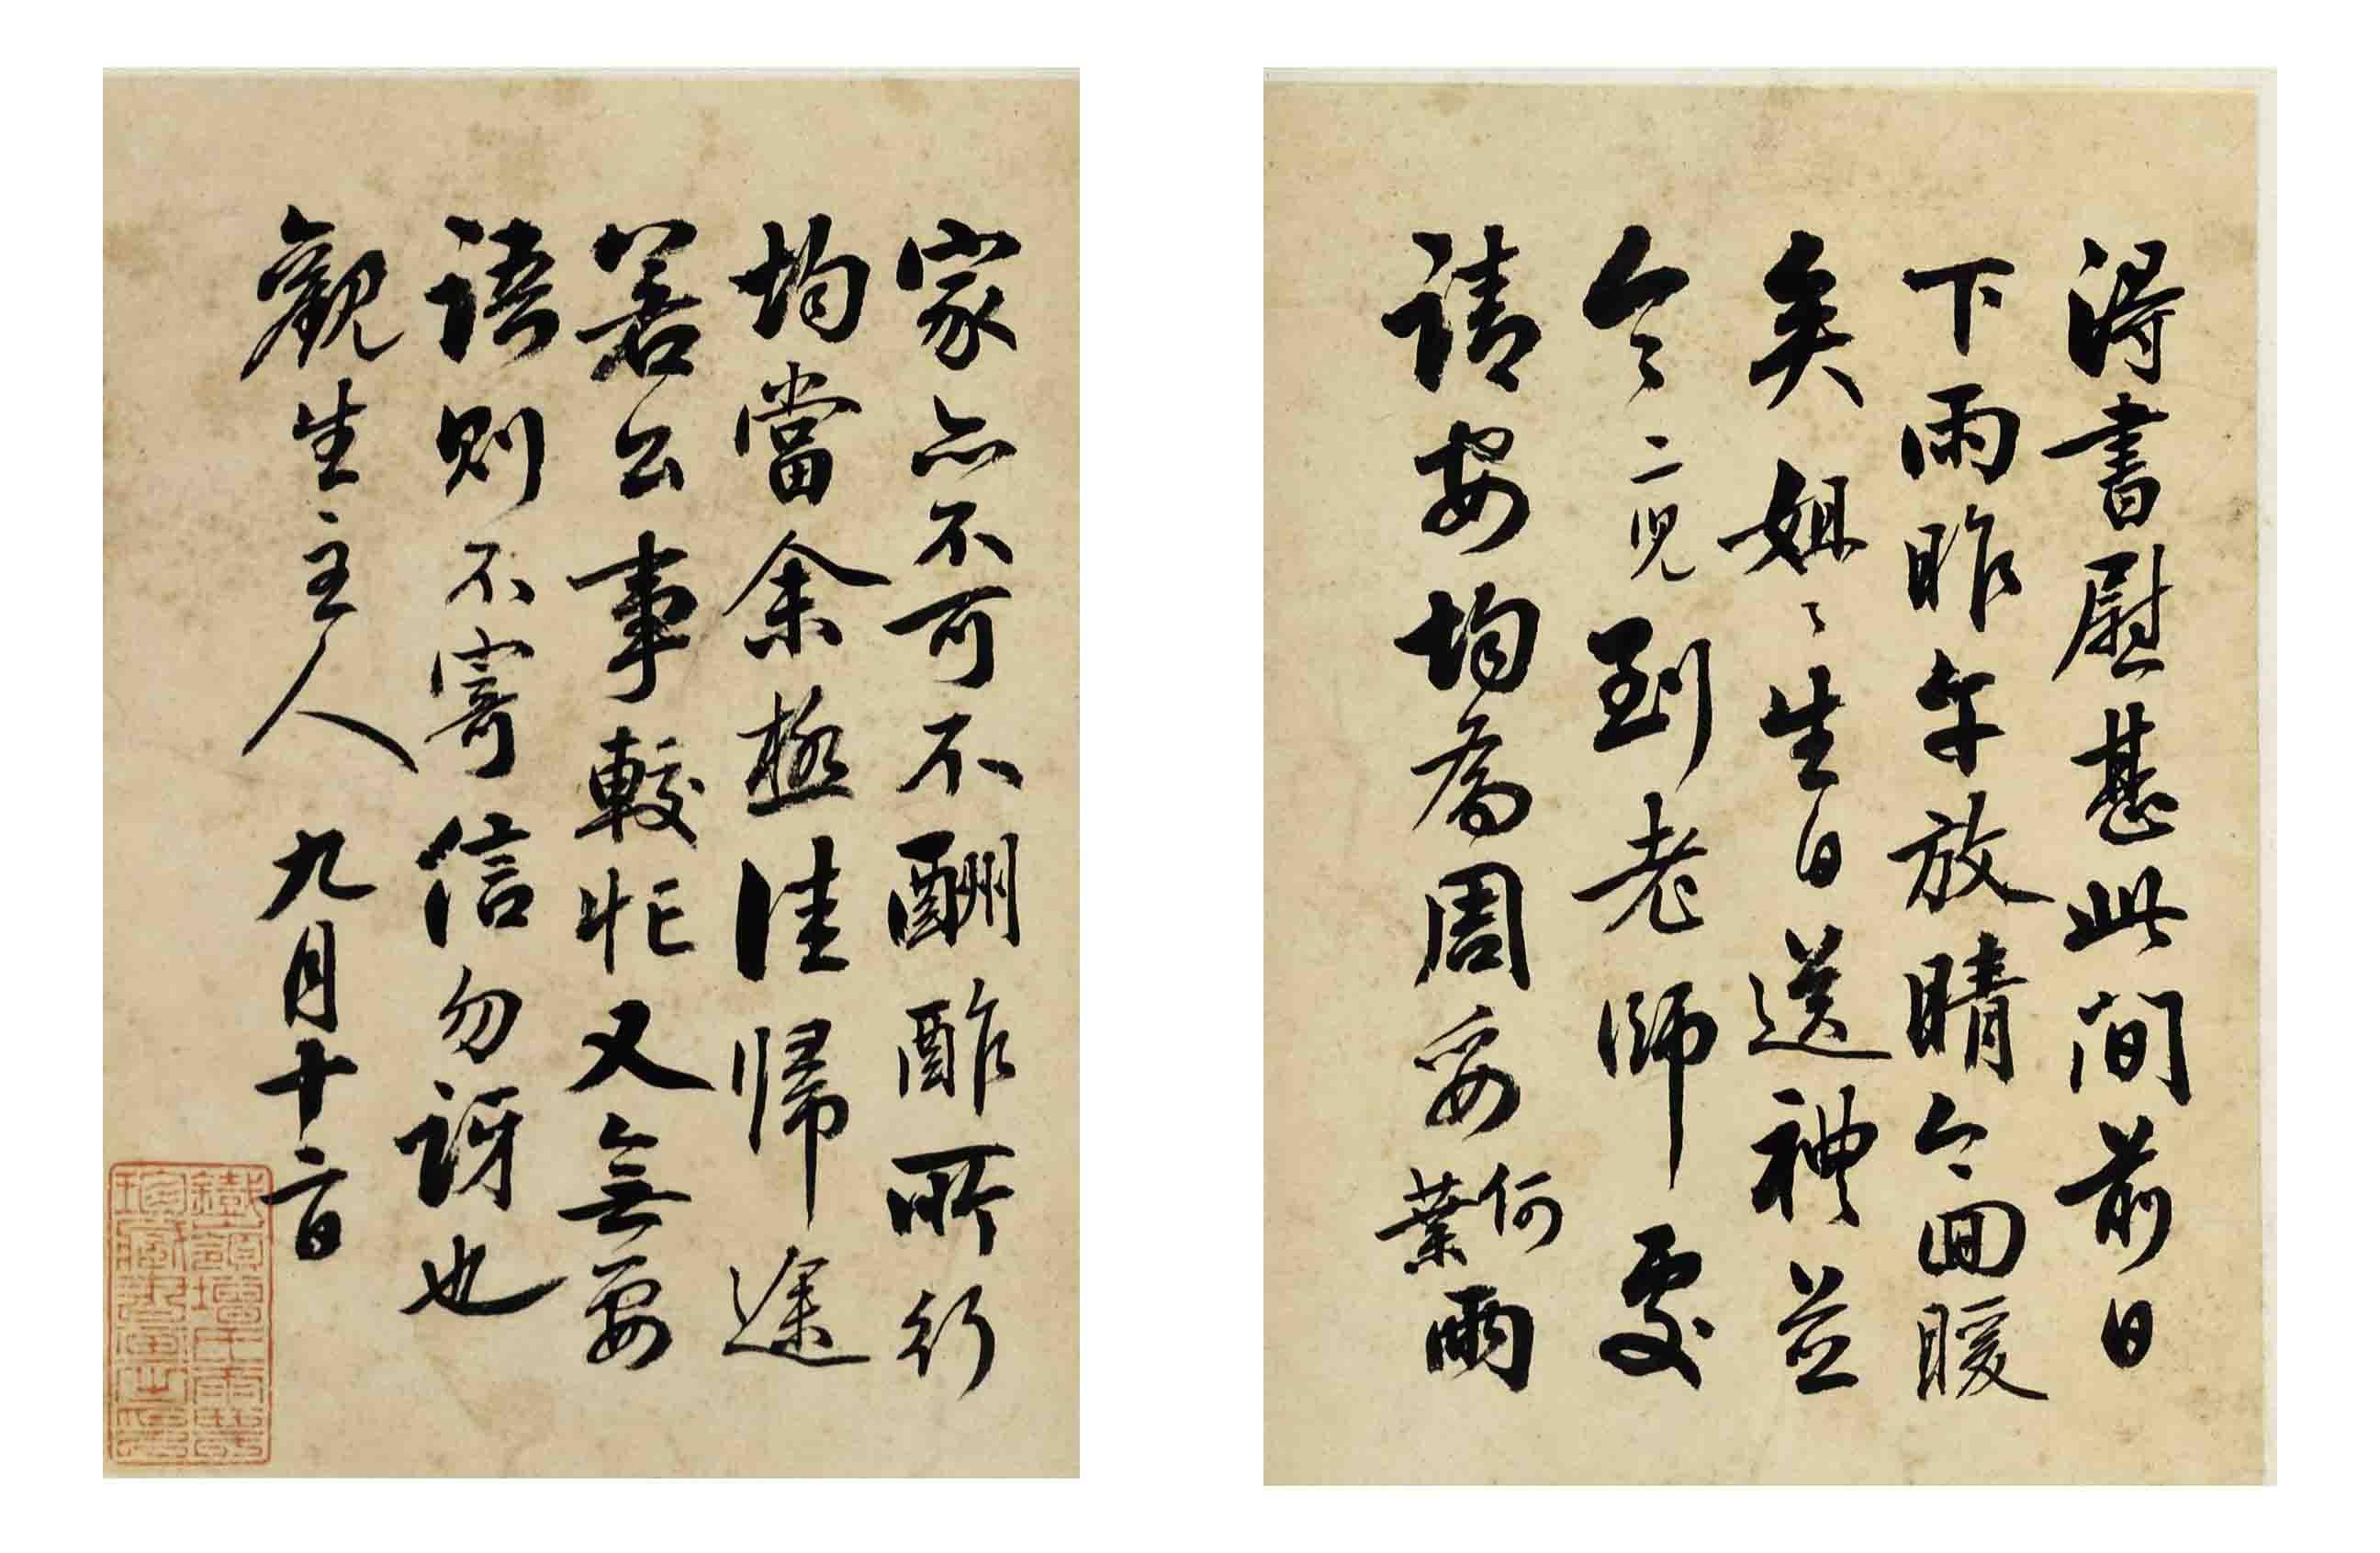 得書慰甚此間前日
下雨昨午放晴今回暖
矣姐〻生日送禮並
令二児到老師處
請安均為周妥何葉兩
家亦不可不酬酢所行
均當余極佳歸途
若公事較忙又無要
語則不寄信勿訝也
觀生主人 九月十二日